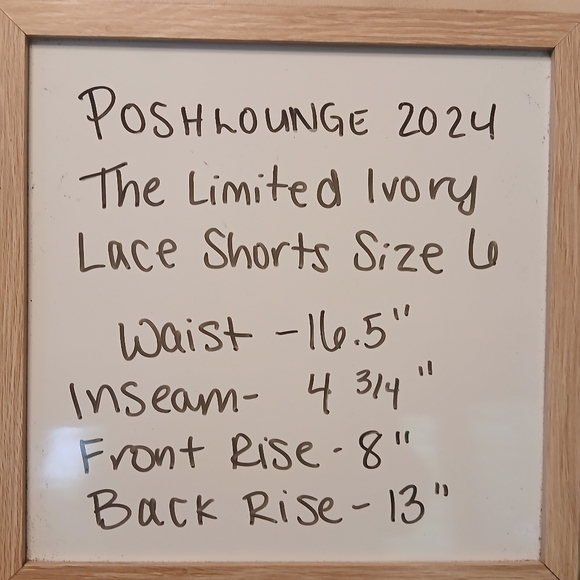 POSHLOUNGE 2024
The Limited Ivory
Lace Shorts Size 6
Waist - 16.5"
Inseam- 4 3/4"
Front Rise - 8"
Back Rise - 13"